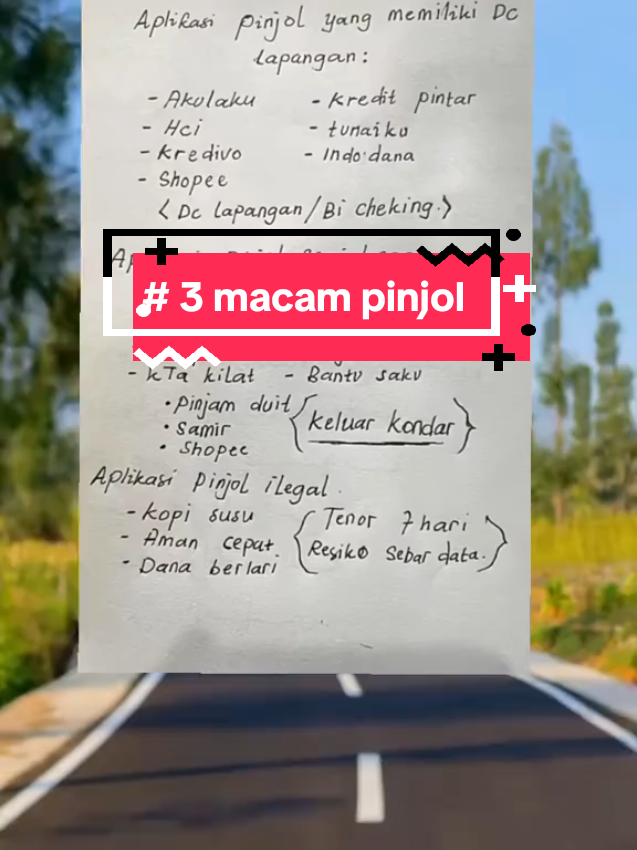 Aplikasi pinjol yang memiliki Dc
Lapangan :
- Akulaku - kredit pintar
- Hci - tunaiku
- kredivo - Indo dana
- Shopee
< Dc lapangan / Bi cheking. >
# 3 macam pinjol
- KTa kilat - Bantu saku
• Pinjam duit
• Samir
• Shopee
{ keluar kondar }
Aplikasi Pinjol ilegal.
- Kopi susu
- Aman cepat.
- Dana berlari
{ Tenor 7 hari
Resiko Sebar data. }